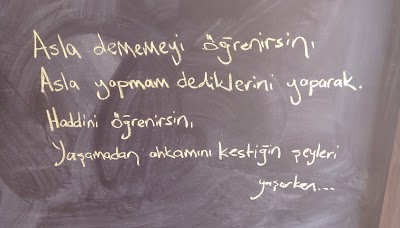 Asla dememeyi öğrenirsin,
Asla yapmam dediklerini yaparak.
Haddini öğrenirsin,
Yaşamadan ahkamını kestiğin şeyleri
yaşarken...